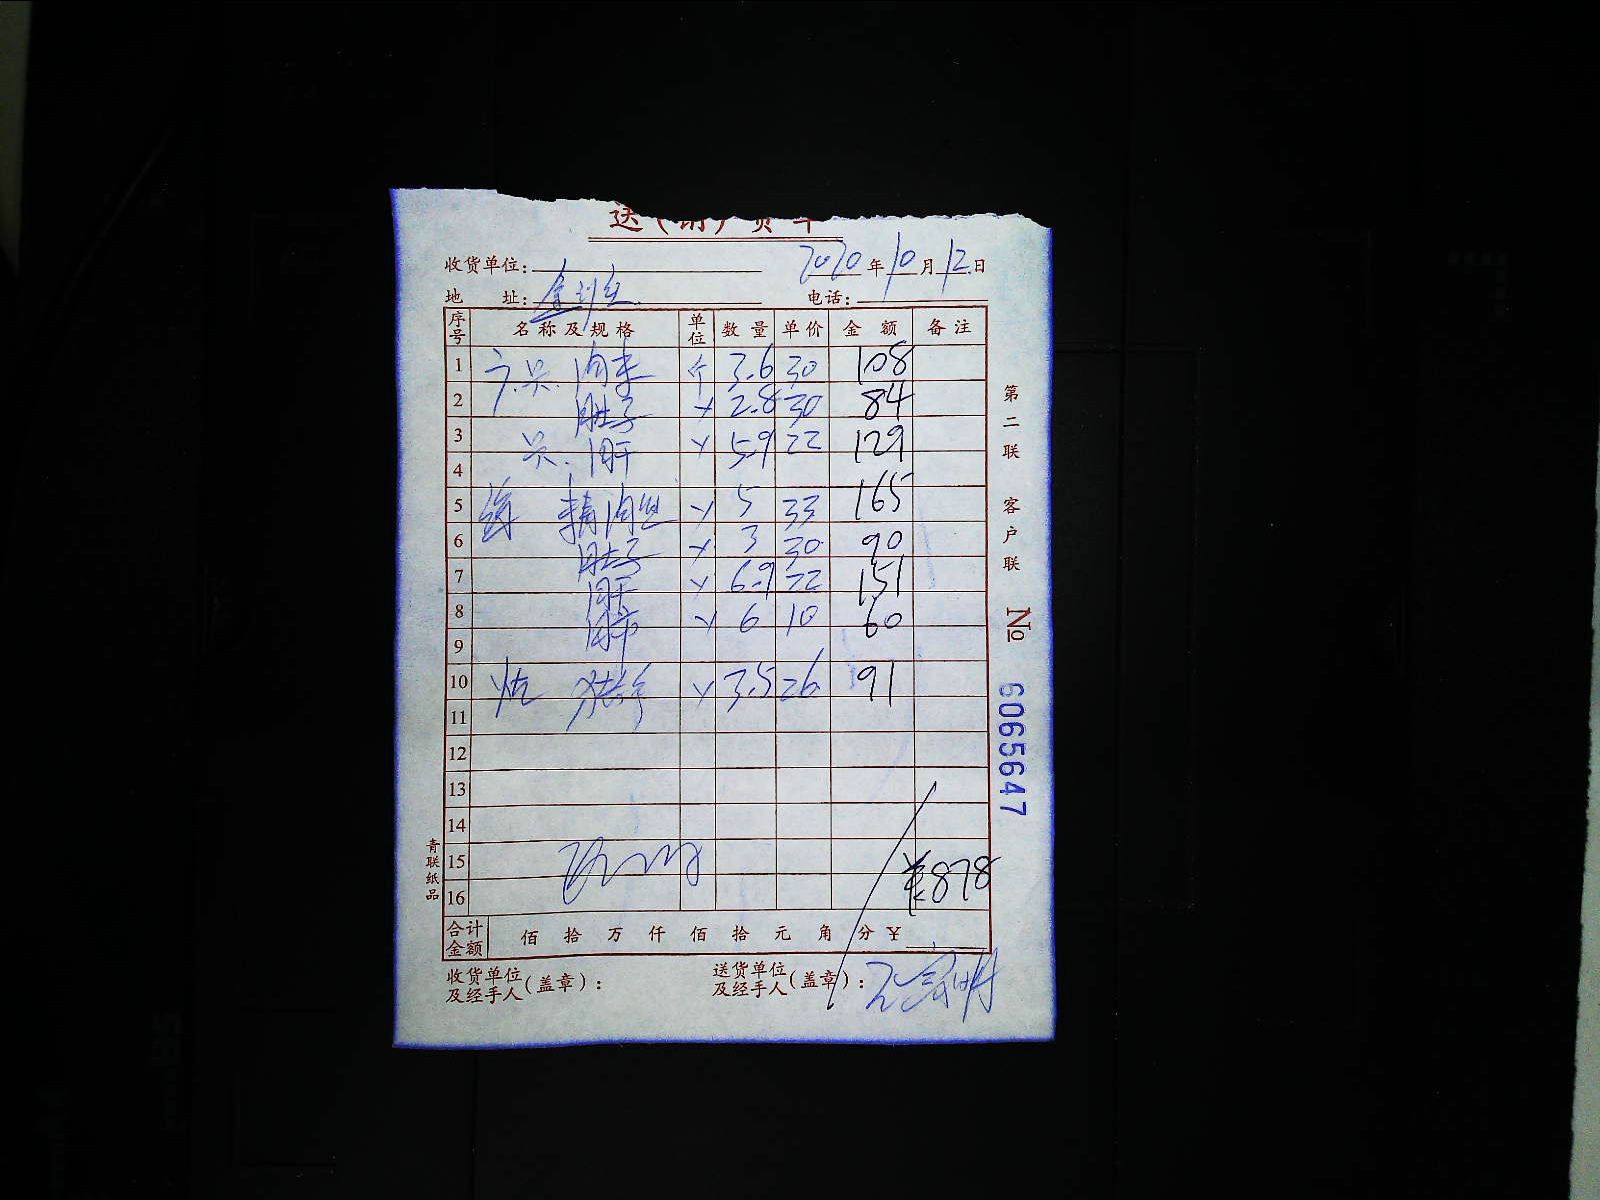 送（销）货单
收货单位： 2020年10月12日
地 址： 电话：
序号 名称及规格 单位 数量 单价 金额 备注
1 3.6 30 108
2 肚子 2.8 30 84
3 肝 5.9 22 129
4
5 精肉丝 5 33 165
6 肚子 3 30 90
7 肝 6.9 22 151
8 肺 6 10 60
9
10 3.5 26 91
11
12
13
14
15
16 ¥878
合计金额 佰 拾 万 仟 佰 拾 元 角 分 ¥
收货单位及经手人（盖章）： 送货单位及经手人（盖章）：
第二联 客户联
№ 6065647
青联纸品